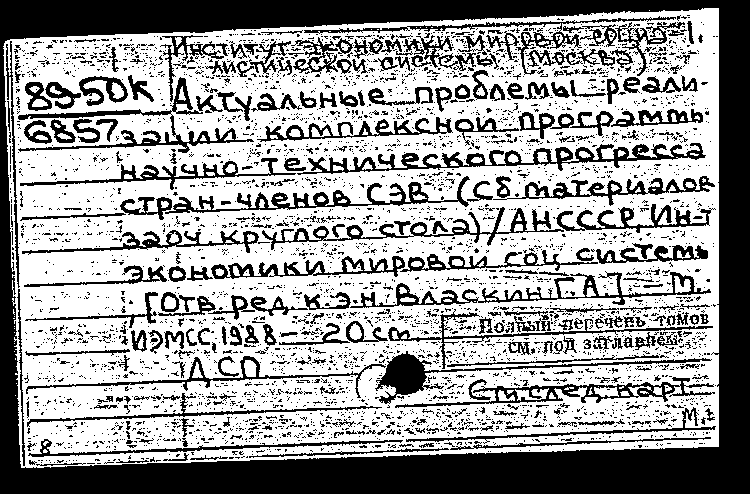 Институт экономики мировой социа- 1.
листической системы (Москва)
89-50К Актуальные проблемы реали-
6857 зации комплексной программы
научно-технического прогресса
стран-членов СЭВ. (Сб. материалов
заоч. круглого стола) / АН СССР, Ин-т
экономики мировой соц. системы
; [Отв. ред. к.э.н. Власкин Г.А.]. — М.:
ИЭМСС, 1988 — 20 см.
Полный перечень томов
см. под заглавием.
ДСП
См. след. карт.
8